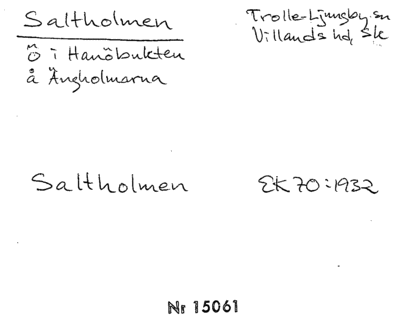 Saltholmen
Trolle-Ljungby sn
Villands hd, Sk
ö i Hanöbukten
å Ängholmarna
Saltholmen
EK 70:1932
Nr 15061